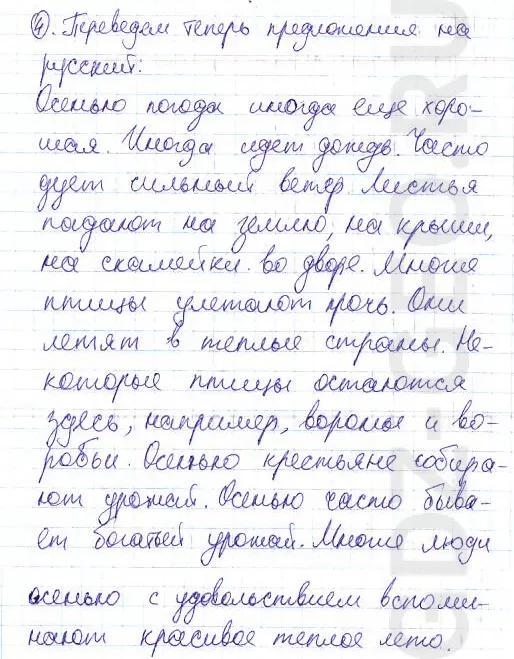 4. Переведем теперь предложения на
русский:
Осенью погода иногда еще хоро-
шая. Иногда идет дождь. Часто
дует сильный ветер. Листья
падают на землю, на крыши,
на скамейки во дворе. Многие
птицы улетают прочь. Они
летят в теплые страны. Не-
которые птицы остаются
здесь, например, вороны и во-
робьи. Осенью крестьяне собира-
ют урожай. Осенью часто быва-
ет богатый урожай. Многие люди
осенью с удовольствием вспоми-
нают красивое теплое лето.
GDZ-GEO.RU